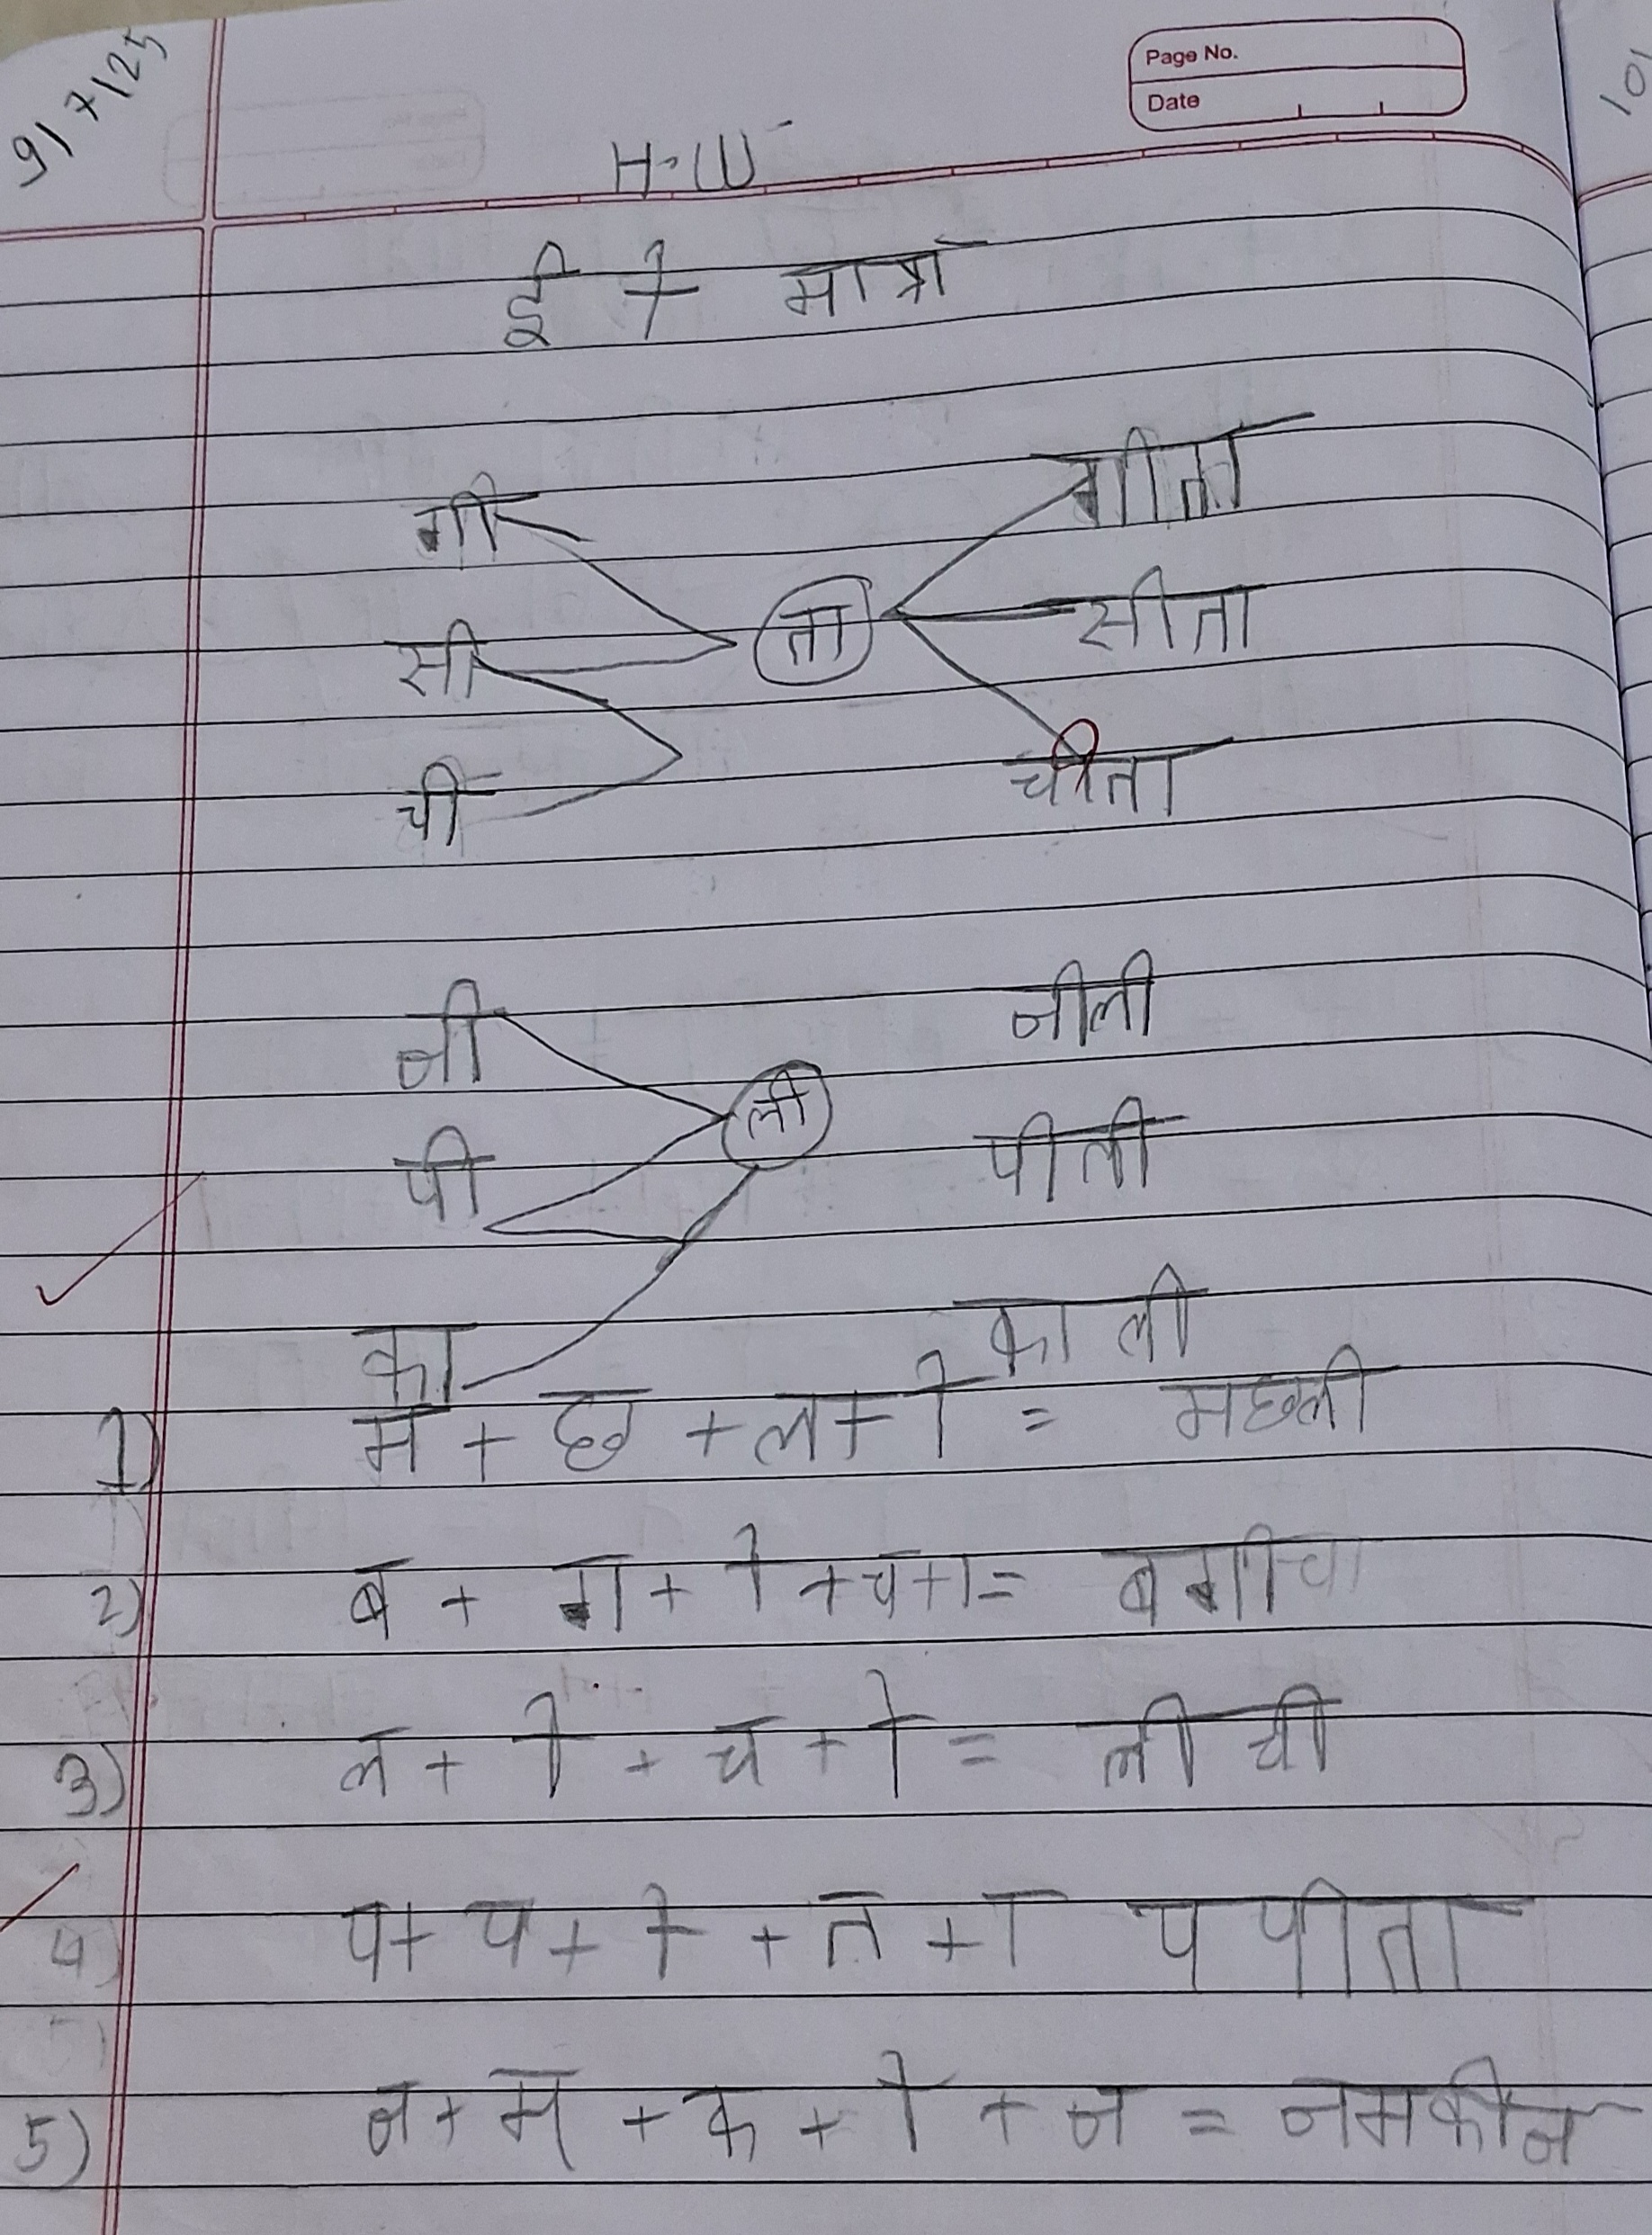 9/7/25
Page No.
Date
H.W
ई ी मात्रा
गी गीता
सी ता सीता
ची चीता
नी नीली
ली
पी पीली
का काली
1) म + छ + ल + ी = मछली
2) ब + ग + ी + च + ा = बगीचा
3) ल + ी + च + ी = लीची
4) प + प + ी + त + ा पपीता
5) न + म + क + ी + न = नमकीन